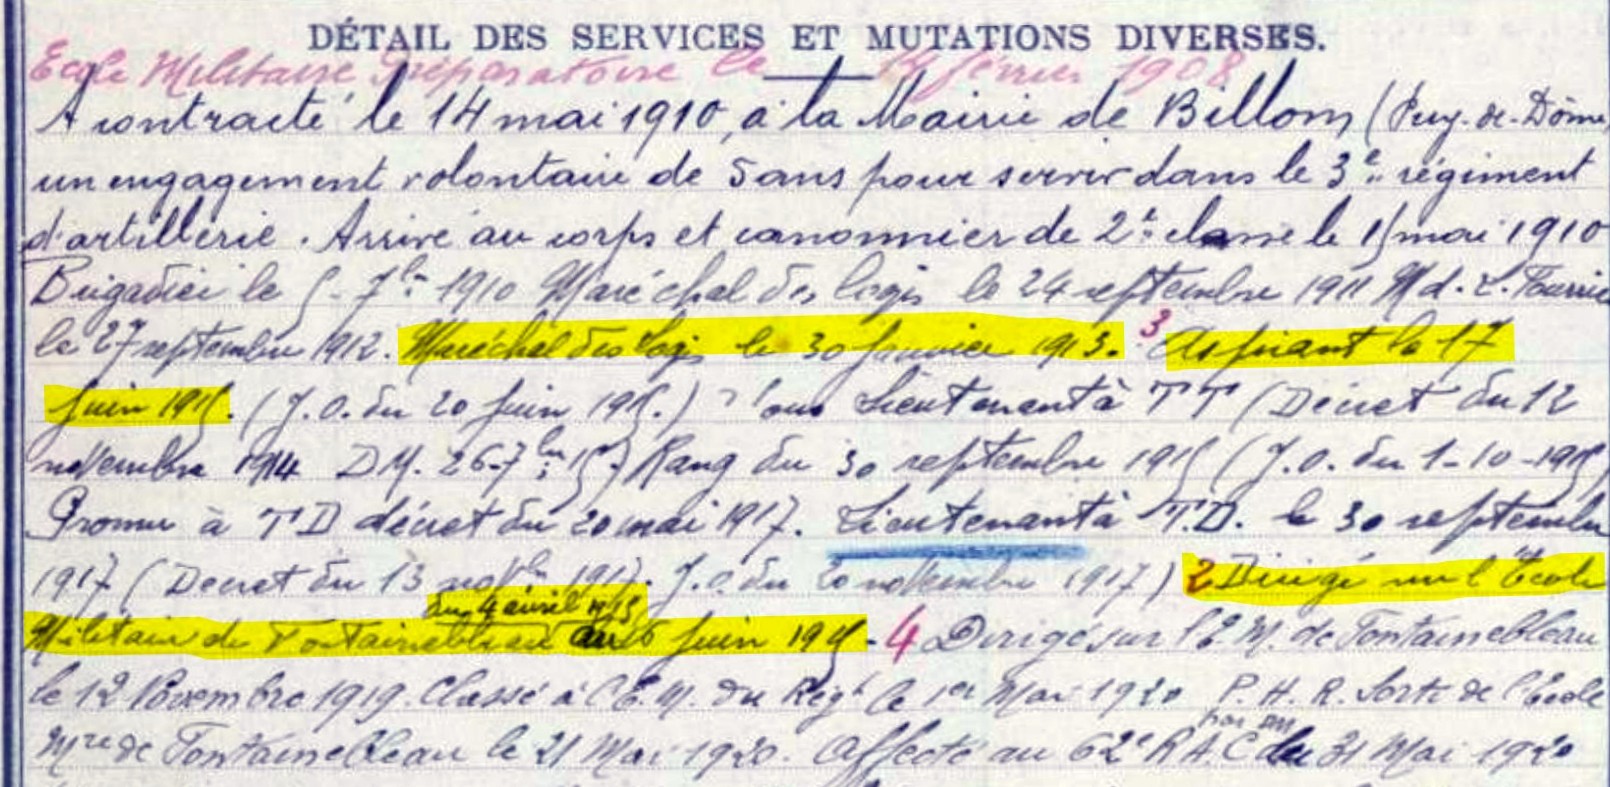 DÉTAIL DES SERVICES ET MUTATIONS DIVERSES.
Ecole Militaire Préparatoire le 14 février 1908
A contracté le 14 mai 1910, à la Mairie de Billom (Puy-de-Dôme
un engagement volontaire de 5 ans pour servir dans le 3e régiment
d'artillerie. Arrivé au corps et canonnier de 2e classe le 15 mai 1910
Brigadier le 5 - 7bre 1910 Maréchal des logis le 24 septembre 1911 Md. L. Fourrier
le 27 septembre 1912. Maréchal des Logis le 30 Janvier 1913. 3 Aspirant le 17
Juin 1915. (J.O. du 20 Juin 1915.) Sous Lieutenant à TT (Décret du 12
novembre 1914 DM. 26-7bre 15) Rang du 30 septembre 1915 (J.O. du 1-10-1915)
Promu à TD décret du 20 mai 1917. Lieutenant à T.D. le 30 septembre
1917 (Décret du 13 novbre 1917. J.O. du 20 novembre 1917) 2 Dirigé sur l'Ecole
du 4 avril 1915
Militaire de Fontainebleau au 6 Juin 1915 - 4 Dirigé sur l'E.M. de Fontainebleau
le 12 Novembre 1919. Classé à l'E.M. du Régt le 1er Mai 1920 P.H.R. Sorti de l'Ecole
par DM
Mre de Fontainebleau le 21 Mai 1920. Affecté au 62e R.A.C du 31 Mai 1920